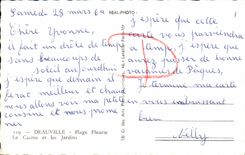 Samedi 28 mars 64
Chère Yvonne,
il fait un drôle de temps
sans beaucoup de
soleil aujourd'hui.
j'espère que demain il
fera meilleur et chaud
nous allons voir ma petite
cousine et nous prome
ner
119 - DEAUVILLE - Plage Fleurie
Le Casino et les Jardins
j'espère que cette
carte vous parviendra
à temps j'espère que
aurez passer de bonne
vacances de Pâques,
je termine ma carte
en vous embrassant
bien
Nelly